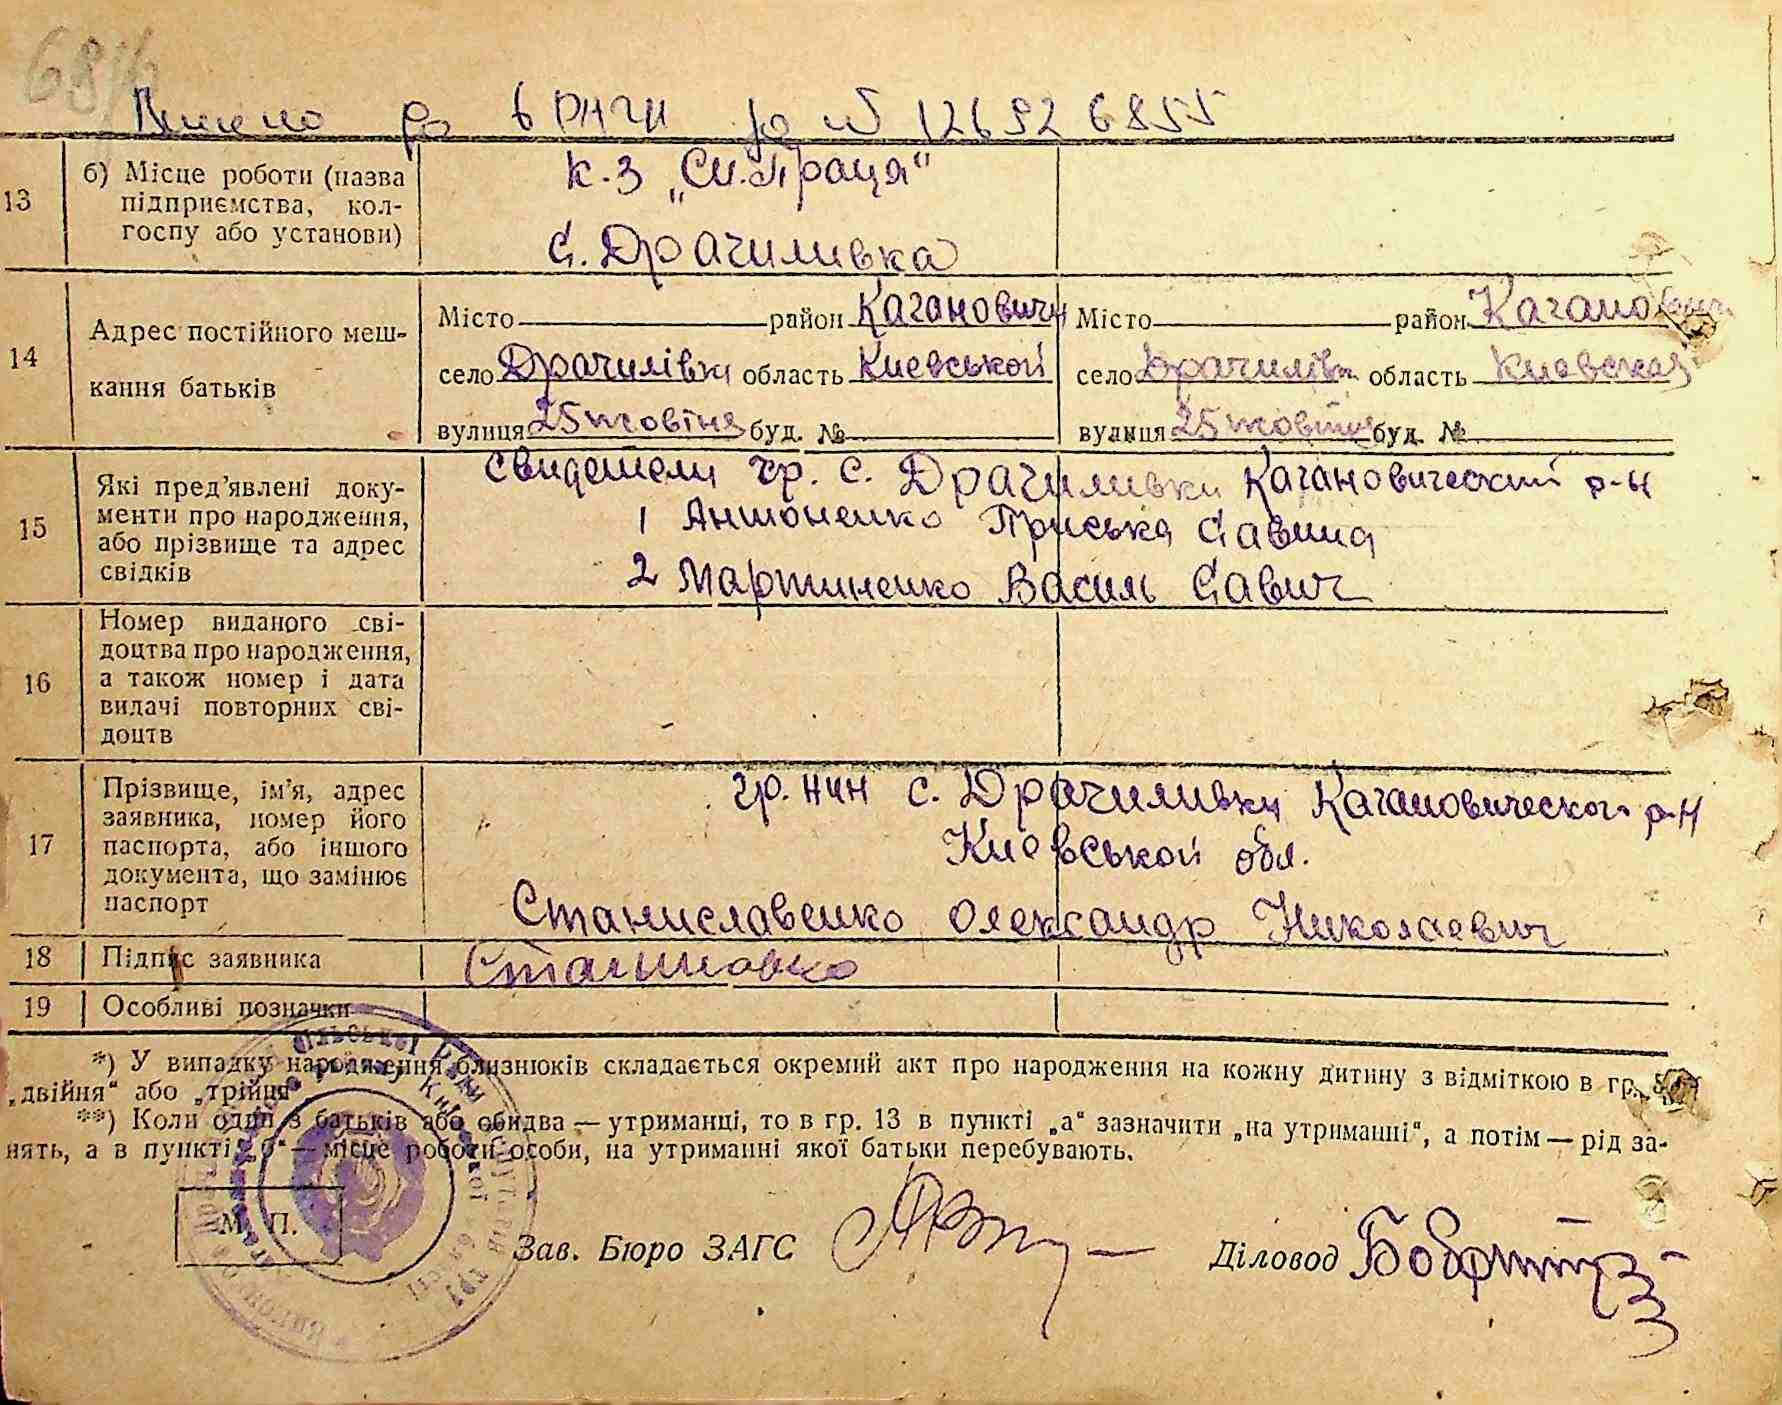 6816
Внесено до ЄРНГН за № 126926855
13
б) Місце роботи (назва
підприємства, кол-
госпу або установи)
к.з „См.Праця“
с. Драчиливка
14
Адрес постійного меш-
кання батьків
Місто район Каганович
село Драчилівки область Киевськой
вулиця 25 жовтня буд. №
Місто район
село Драчилівка область Киевская
вулиця 25 жовтня буд. №
15
Які пред’явлені доку-
менти про народження,
або прізвище та адрес
свідків
Свидетели гр. с. Драчиливки Кагановический р-н
1 Антоненко Приська Савина
2 Мартиненко Василь Савич
16
Номер виданого сві-
доцтва про народження,
а також номер і дата
видачі повторних сві-
доцтв
17
Прізвище, ім’я, адрес
заявника, номер його
паспорта, або іншого
документа, що замінює
паспорт
гр. с. Драчиливки Кагановического р-н
Киевськой обл.
Станиславенко Олександр Николаевич
18
Підпис заявника
19
Особливі позначки
*) У випадку народження близнюків складається окремий акт про народження на кожну дитину з відміткою в гр.
„двійня“ або „трійня“
**) Коли один з батьків або обидва — утриманці, то в гр. 13 в пункті „а“ зазначити „на утриманні“, а потім — рід за-
нять, а в пункті „б“ — місце роботи особи, на утриманні якої батьки перебувають.
М. П.
Зав. Бюро ЗАГС
Діловод